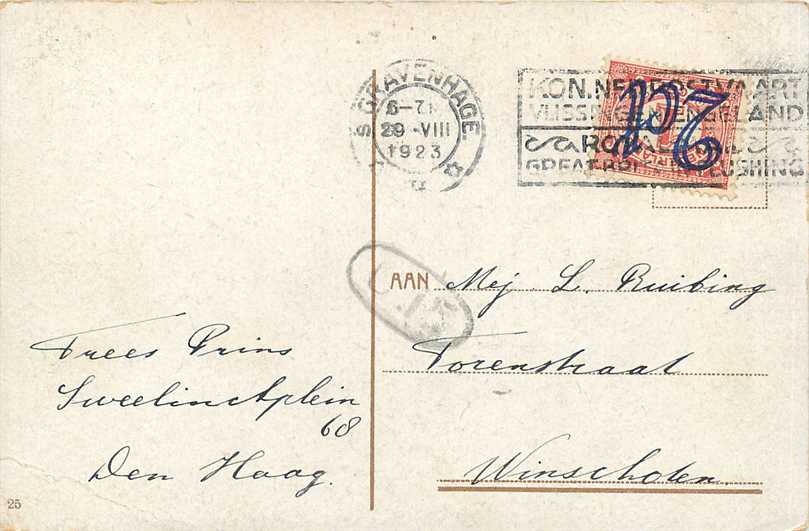 'S GRAVENHAGE.
6-7N
29-VIII
1923
KON. NED. POSTVAART
VLISSINGEN ENGELAND
ROYAL MAIL
GREAT BRI FLUSHING
AAN Mej L. Ruibing
Torenstraat
Winschoten
Trees Prins
Sweelinckplein
68
Den Haag.
25